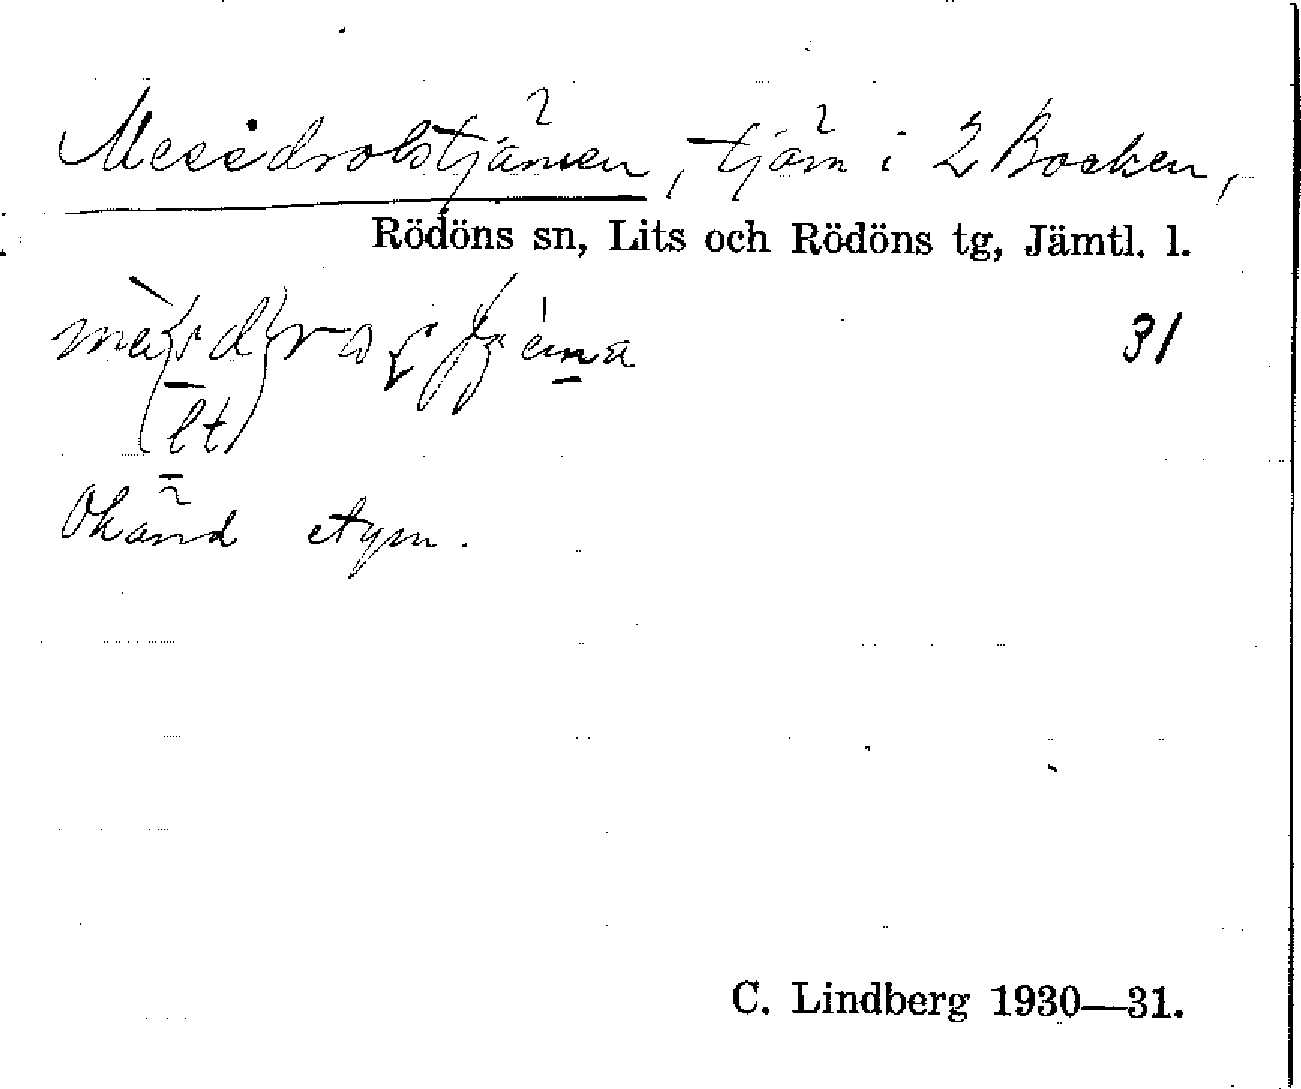 Messdrolstjärnen, tjärn i 2 Backen,
Rödöns sn, Lits och Rödöns tg, Jämtl. l.
31
(lt)
Okänd etym.
C. Lindberg 1930—31.